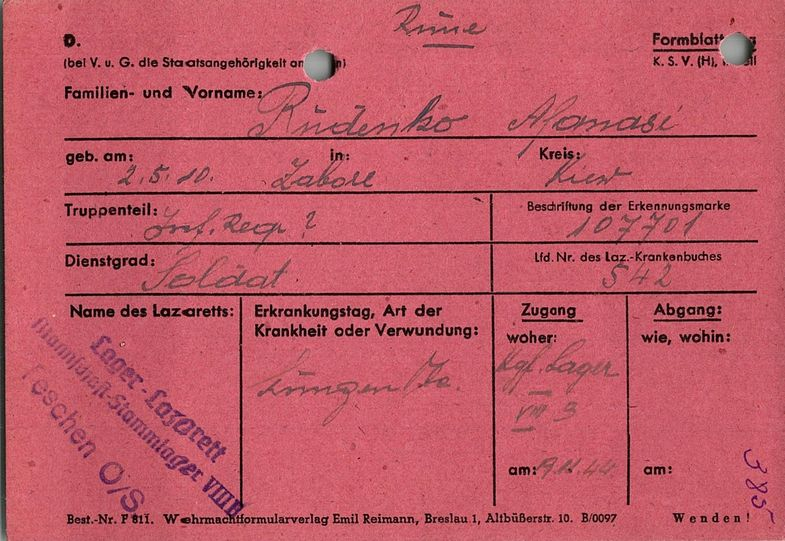 D.
(bei V. u. G. die Staatsangehörigkeit
Formblatt
K. S. V. (H),
Familien- und Vorname:
Rudenko Afanasi
geb. am: in: Kreis:
2.5.10. Zabore Kiew
Truppenteil: Beschriftung der Erkennungsmarke
Inf. Regr ? 107701
Dienstgrad: Lfd. Nr. des Laz.-Krankenbuches
Soldat 542
Name des Lazaretts:
Erkrankungstag, Art der
Krankheit oder Verwundung:
Zugang
woher:
Abgang:
wie, wohin:
Lager-Lazarett
Mannschaft-Stammlager VIII B
Teschen O/S
Lungen Tb.
Kgf. Lager
VIII B
am: 19.11.44
am:
385
Best.-Nr. F 811. Wehrmachtformularverlag Emil Reimann, Breslau 1, Altbüßerstr. 10. B/0097 Wenden!